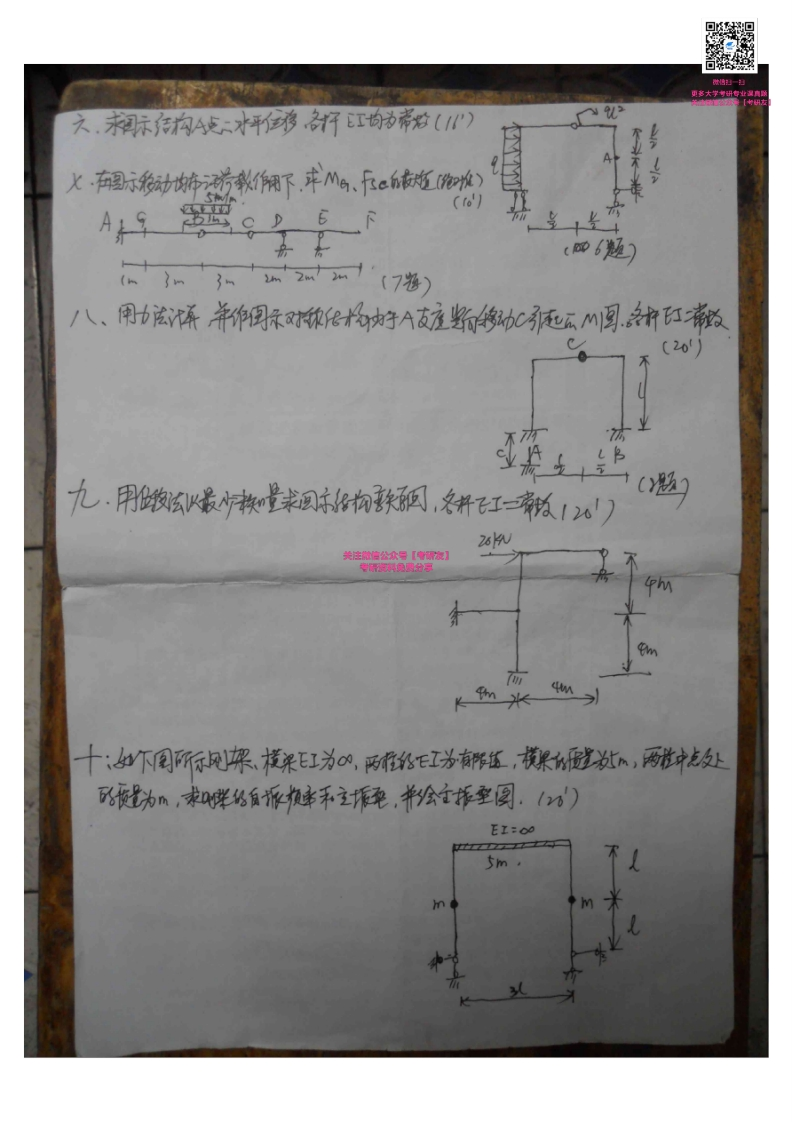 微信扫一扫
更多大学考研专业课真题
关注微信公众号【考研友】
六、求图示结构A点水平位移,各杆EI均为常数(16')
ql²
q
A
l/2
l/2
l/2
l/2
(6题)
七.在图示移动均布活荷载作用下,求MG、FSC的最大值(绝对值)
(10')
5kN/m
A G B 1m C D E F
1m 3m 3m 2m 2m 2m
(7题)
八、用力法计算,并作图示对称结构由于A支座竖向移动C引起的M图,各杆EI=常数.
(20')
C
l
C A l/2 l/2 B
九.用位移法以最少未知量求图示结构弯矩图,各杆EI=常数(20')
关注微信公众号【考研友】
考研资料免费分享
20kN
4m
4m
4m 4m
十:如下图所示刚架、横梁EI为∞,两柱的EI为有限值,横梁的质量为5m,两柱中点处
的质量为m,求刚架的自振频率和主振型,并绘主振型图.(20')
EI=∞
5m.
l
m m
l
3l